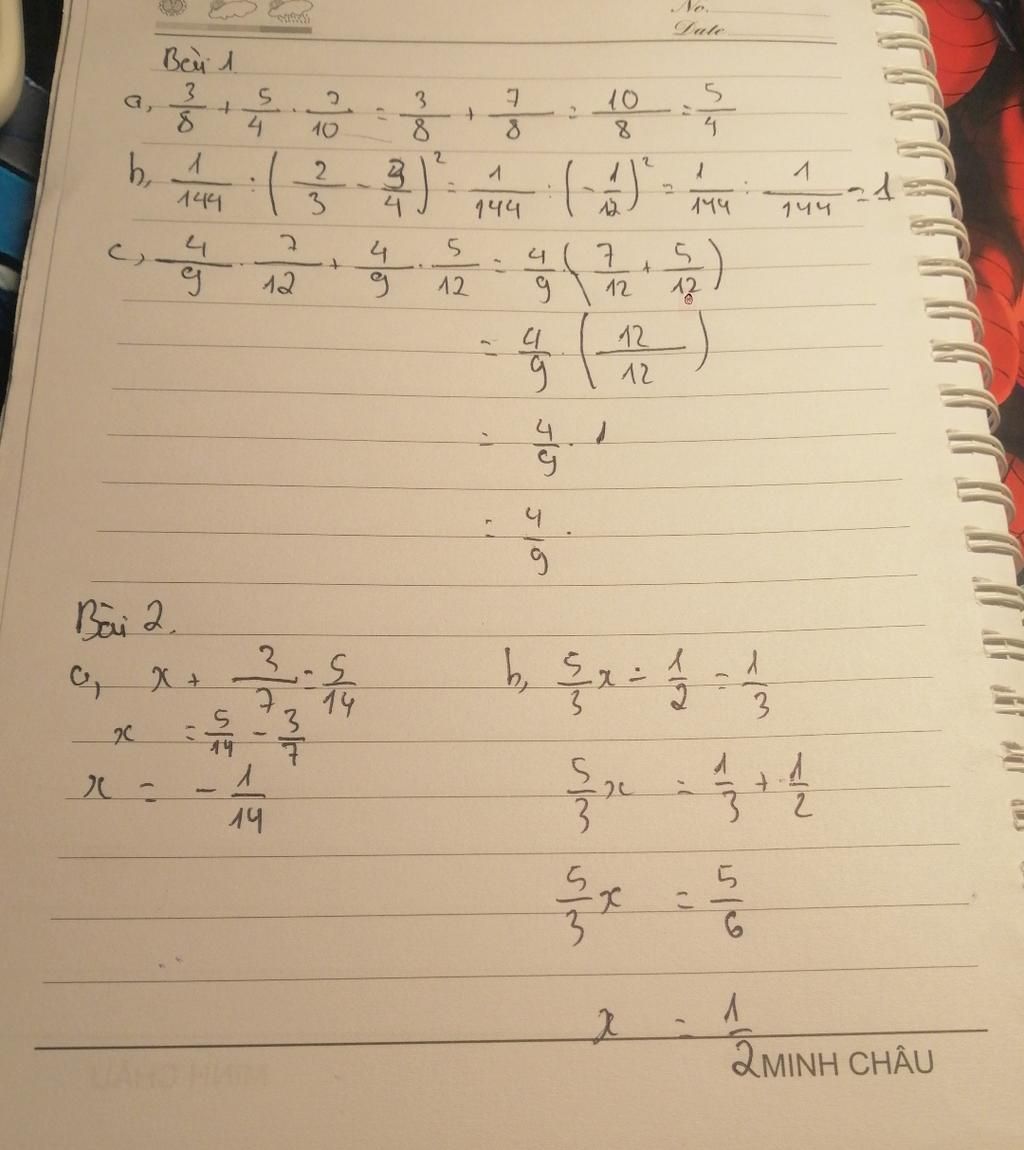 No.
Date
Bài 1
a, 3/8 + 5/4 . 7/10 = 3/8 + 7/8 = 10/8 = 5/4
b, 1/144 : (2/3 - 3/4)² = 1/144 : (-1/12)² = 1/144 : 1/144 = 1
c, 4/9 . 7/12 + 4/9 . 5/12 = 4/9 . (7/12 + 5/12)
= 4/9 . (12/12)
= 4/9 . 1
= 4/9 .
Bài 2.
a, x + 3/7 = 5/14
x = 5/14 - 3/7
x = - 1/14
b, 5/3 x - 1/2 = 1/3
5/3 x = 1/3 + 1/2
5/3 x = 5/6
x = 1/2
MINH CHÂU